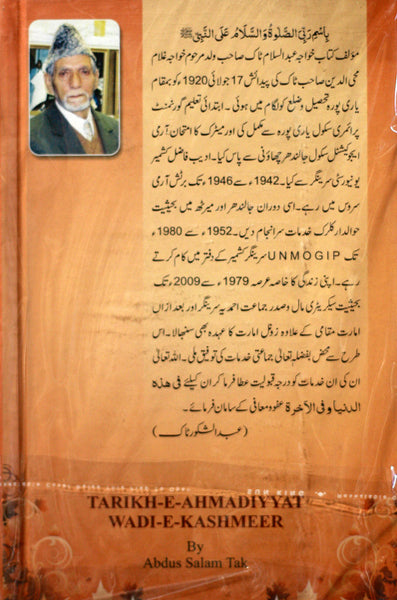 بِاسْمِ رَبِّیْ الصَّلٰوۃُ وَالسَّلَامُ عَلَی النَّبِیِّ ﷺ
مؤلف کتاب خواجہ عبدالسلام ٹاک صاحب ولد مرحوم خواجہ غلام
محی الدین صاحب ٹاک کی پیدائش 17 جولائی 1920ء کو بمقام
یاری پورہ تحصیل و ضلع کولگام میں ہوئی۔ ابتدائی تعلیم گورنمنٹ
پرائمری سکول یاری پورہ سے مکمل کی اور میٹرک کا امتحان آرمی
ایجوکیشنل سکول جالندھر چھاؤنی سے پاس کیا۔ ادیب فاضل کشمیر
یونیورسٹی سرینگر سے کیا۔ 1942ء سے 1946ء تک برٹش آرمی
سروس میں رہے۔ اسی دوران جالندھر اور میرٹھ میں بحیثیت
حوالدار کلرک خدمات سرانجام دیں۔ 1952ء سے 1980ء
تک UNMOGIP سرینگر کشمیر کے دفتر میں کام کرتے
رہے۔ اپنی زندگی کا خاصہ عرصہ 1979 سے 2009ء تک
بحیثیت سیکریٹری مال و صدر جماعت احمدیہ سرینگر اور بعد ازاں
امارت مقامی کے علاوہ زونل امارت کا عہدہ بھی سنبھالا۔ اس
طرح سے محض بفضلہ تعالیٰ جماعتی خدمات کی توفیق ملی۔ اللہ تعالیٰ
ان کی ان خدمات کو درجہ قبولیت عطا فرما کر ان کیلئے فی ھذہ
الدنیا و فی الآخرۃ عفو و معافی کے سامان فرمائے۔
(عبدالشکور ٹاک)
TARIKH-E-AHMADIYYAT
WADI-E-KASHMEER
By
Abdus Salam Tak